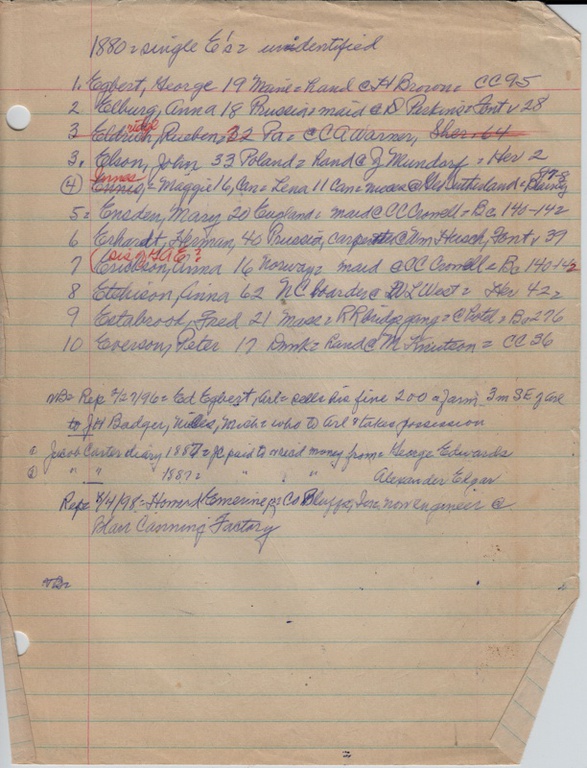 1880 = single E's = unidentified
1. Egbert, George 19 Maine = hand @ H Brown = CC 95
2 Elburg, Anna 18 Prussia = maid @ D Perkins = Font v 28
ridge
3 Eldrich, Rueben, 32 Pa = @ CA Warner, Sher. 64
3. Elson, John 33 Poland = hand @ J Mundorf = Her 2
Ennes 17-8
(4) Ennig, = Maggie 16, Can = Lena 11 Can = @ Sutherland =
5 = Ensden, Mary, 20 England = maid @ CC Crowell = Bo 140-142
6 Erhardt, Herman, 40 Prussia, carpenter @ Wm Hersch, Font v 39
(sis of G A E?
7 Erickson, Anna 16 Norway = maid @ CC Crowell = Bo 140-142
8 Etchison, Anna 62 NC boarder @ L West = Her 42
9 Estabrook, Fred 21 Mass = RR bridge gang = @ hotel = Bo 276
10 Everson, Peter 17 Dnmk = hand @ M Knutson = CC 36
NB = Rep 2/27/96 = Ed Egbert, Arl = sells his fine 200 a farm 3 m SE of Arl
to JH Badger, Niles, Mich = who to Arl & takes possession
Jacob Carter diary 1887 = JC paid & recd money from = George Edwards
" " 1887 = " " Alexander Edgar
Rep = 8/4/98 = Homer Emerine, of Co Bluffs, Ia = now engineer @
Blair Canning Factory
NB =